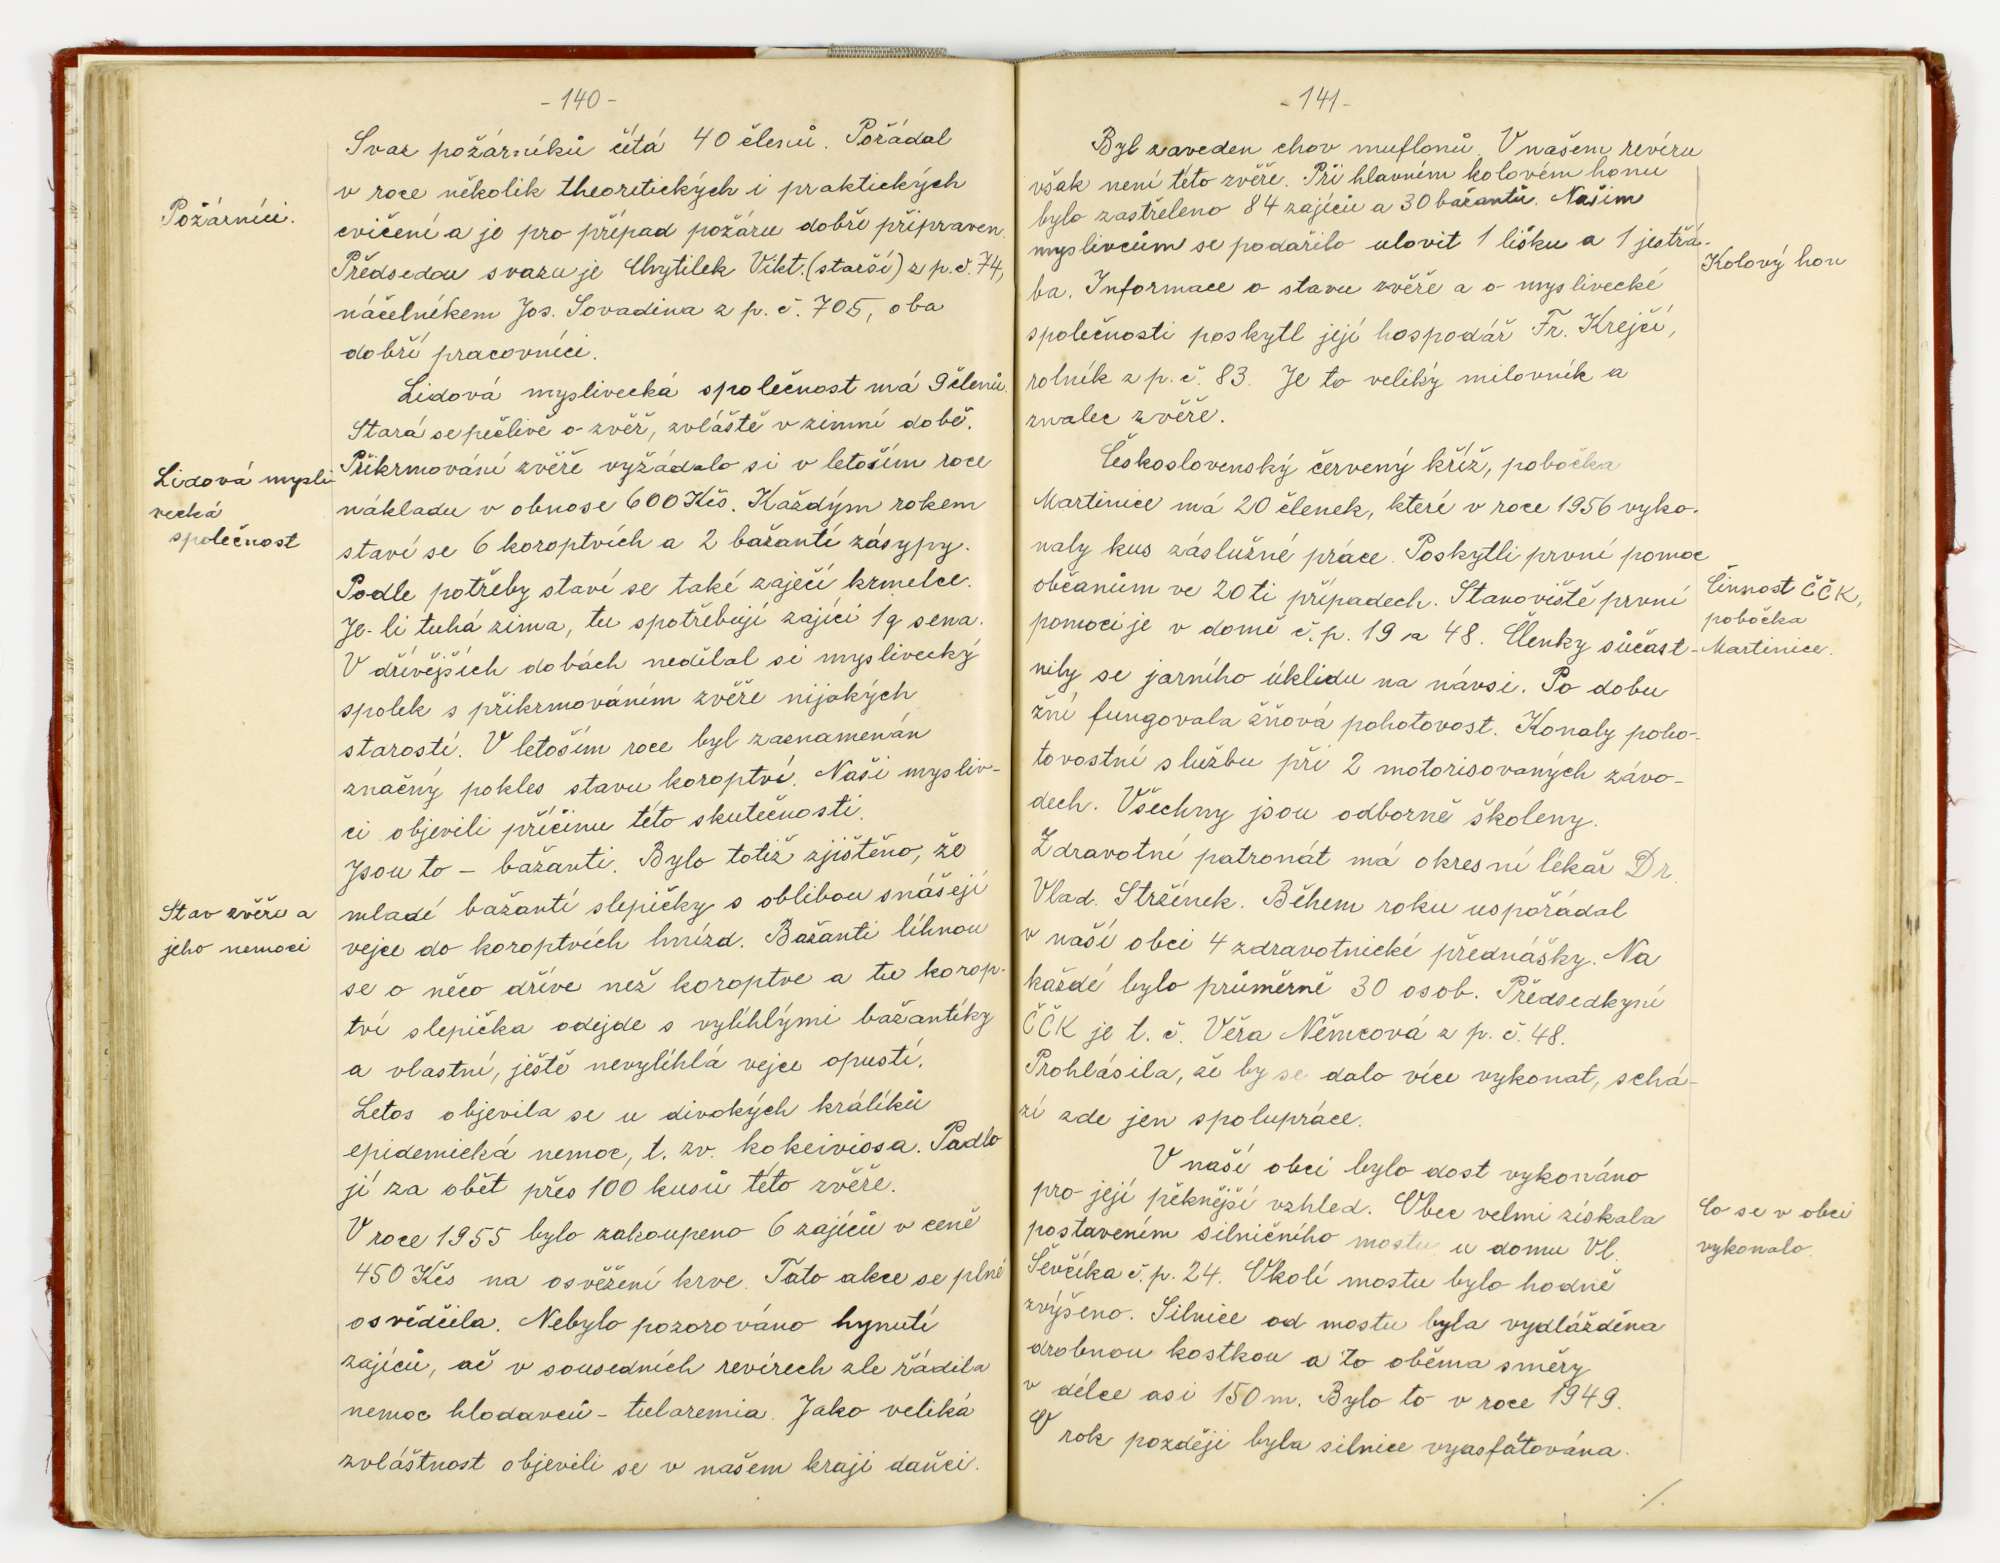 - 140 -
Svaz požárníků čítá 40 členů. Pořádal
v roce několik theoretických i praktických
Požárníci.
cvičení a je pro případ požáru dobře připraven.
Předsedou svazu je Chytilek Vikt. (starší) z p. č. 74,
náčelníkem Jos. Sovadina z p. č. 705, oba
dobří pracovníci.
Lidová myslivecká společnost má 9 členů.
Stará se pečlivě o zvěř, zvláště v zimní době.
Lidová mysli
vecká
společnost
Přikrmování zvěře vyžádalo si v letoším roce
nákladu v obnose 600 Kčs. Každým rokem
staví se 6 koroptvích a 2 bažantí zásypy.
Podle potřeby staví se také zaječí krmelce.
Je-li tuhá zima, tu spotřebují zajíci 1q sena.
V dřívějších dobách nedělal si myslivecký
spolek s přikrmováním zvěře nijakých
starostí. V letoším roce byl zaznamenán
značný pokles stavu koroptví. Naši mysliv-
ci objevili příčinu této skutečnosti.
Jsou to - bažanti. Bylo totiž zjištěno, že
Stav zvěře a
jeho nemoci
mladé bažantí slepičky s oblibou snášejí
vejce do koroptvích hnízd. Bažanti líhnou
se o něco dříve než koroptve a tu korop-
tví slepička odejde s vylíhlými bažantíky
a vlastní, ještě nevylíhlá vejce opustí.
Letos objevila se u divokých králíků
epidemická nemoc, t. zv. kokeiviosa. Padlo
jí za oběť přes 100 kusů této zvěře.
V roce 1955 bylo zakoupeno 6 zajíců v ceně
450 Kčs na osvěžení krve. Tato akce se plně
osvědčila. Nebylo pozorováno hynutí
zajíců, ač v sousedních revírech zle řádila
nemoc hlodavců - tularemia. Jako veliká
zvláštnost objevili se v našem kraji daňci.
- 141 -
Byl zaveden chov muflonů. V našem revíru
však není této zvěře. Při hlavním kolovém honu
bylo zastřeleno 84 zajíců a 30 bažantů. Našim
myslivcům se podařilo ulovit 1 lišku a 1 jestřá-
Kolový hon
ba. Informace o stavu zvěře a o myslivecké
společnosti poskytl její hospodář Fr. Krejčí,
rolník z p. č. 83. Je to veliký milovník a
znalec zvěře.
Československý červený kříž, pobočka
Martinice má 20 členek, které v roce 1956 vyko-
naly kus záslužné práce. Poskytli první pomoc
občanům ve 20ti případech. Stanoviště první
Činnost ČČK,
pobočka
Martinice.
pomoci je v domě č. p. 19 a 48. Členky súčast-
nily se jarního úklidu na návsi. Po dobu
žní fungovala žňová pohotovost. Konaly poho-
tovostní službu při 2 motorisovaných závo-
dech. Všechny jsou odborně školeny.
Zdravotní patronát má okresní lékař Dr.
Vlad. Stržínek. Během roku uspořádal
v naší obci 4 zdravotnické přednášky. Na
každé bylo průměrně 30 osob. Předsedkyní
ČČK je t. č. Věra Němcová z p. č. 48.
Prohlásila, že by se dalo více vykonat, schá-
zí zde jen spolupráce.
V naší obci bylo dost vykonáno
pro její pěknější vzhled. Obec velmi získala
Co se v obci
vykonalo.
postavením silničního mostu u domu Vl.
Ševčíka č. p. 24. Okolí mostu bylo hodně
zvýšeno. Silnice od mostu byla vydlážděna
drobnou kostkou a to oběma směry
v délce asi 150 m. Bylo to v roce 1949.
O rok později byla silnice vyasfátována.
./.